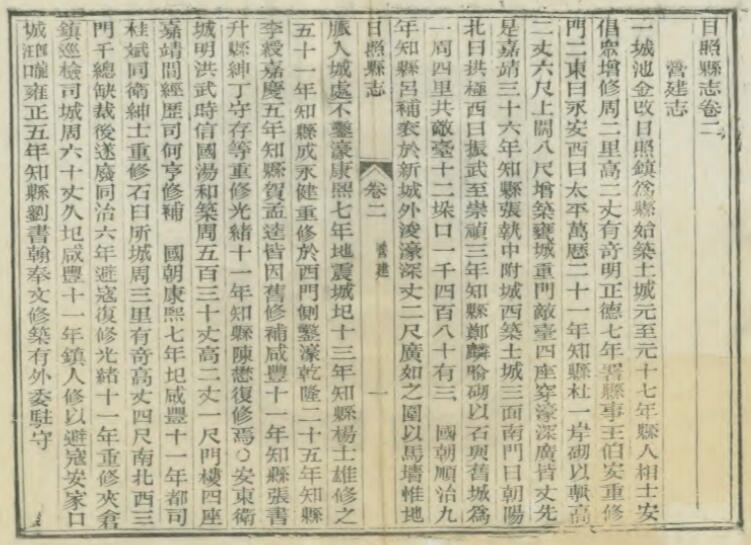 日照縣志卷二
營建志
一城池金改日照鎮爲縣始築土城元至元十七年縣人相士安
倡衆增修周二里高二丈有奇明正德七年署縣事王伯安重修
門二東曰永安西曰太平萬曆二十一年知縣杜一岸砌以甎高
二丈六尺上闊八尺增築甕城重門敵臺四座穿濠深廣皆丈先
是嘉靖三十六年知縣張執中附城西築土城三面南門曰朝陽
北曰拱極西曰振武至崇禎三年知縣鄭麟聆砌以石與舊城爲
一周四里共敵臺十二垛口一千四百八十有三　國朝順治九
年知縣呂補袠於新城外浚濠深丈二尺廣如之圍以馬墻惟地
日照縣志　卷二　營建　一
脈入城處不鑿濠康熙七年地震城圮十三年知縣楊士雄修之
五十一年知縣成永健重修於西門側鑿濠乾隆二十五年知縣
李綬嘉慶五年知縣賀孟逵皆因舊修補咸豐十一年知縣張書
升縣紳丁守存等重修光緒十一年知縣陳懋復修焉○安東衛
城明洪武時信國湯和築周五百三十丈高二丈一尺門樓四座
嘉靖間經歷司何亨修補　國朝康熙七年圮咸豐十一年都司
桂斌同衛紳士重修石臼所城周三里有奇高丈四尺南北西三
門千總缺裁後遂廢同治六年避寇復修光緒十一年重修夾倉
鎮巡檢司城周六十丈久圮咸豐十一年鎮人修以避寇安家口
城在龍汪口雍正五年知縣劉書翰奉文修築有外委駐守